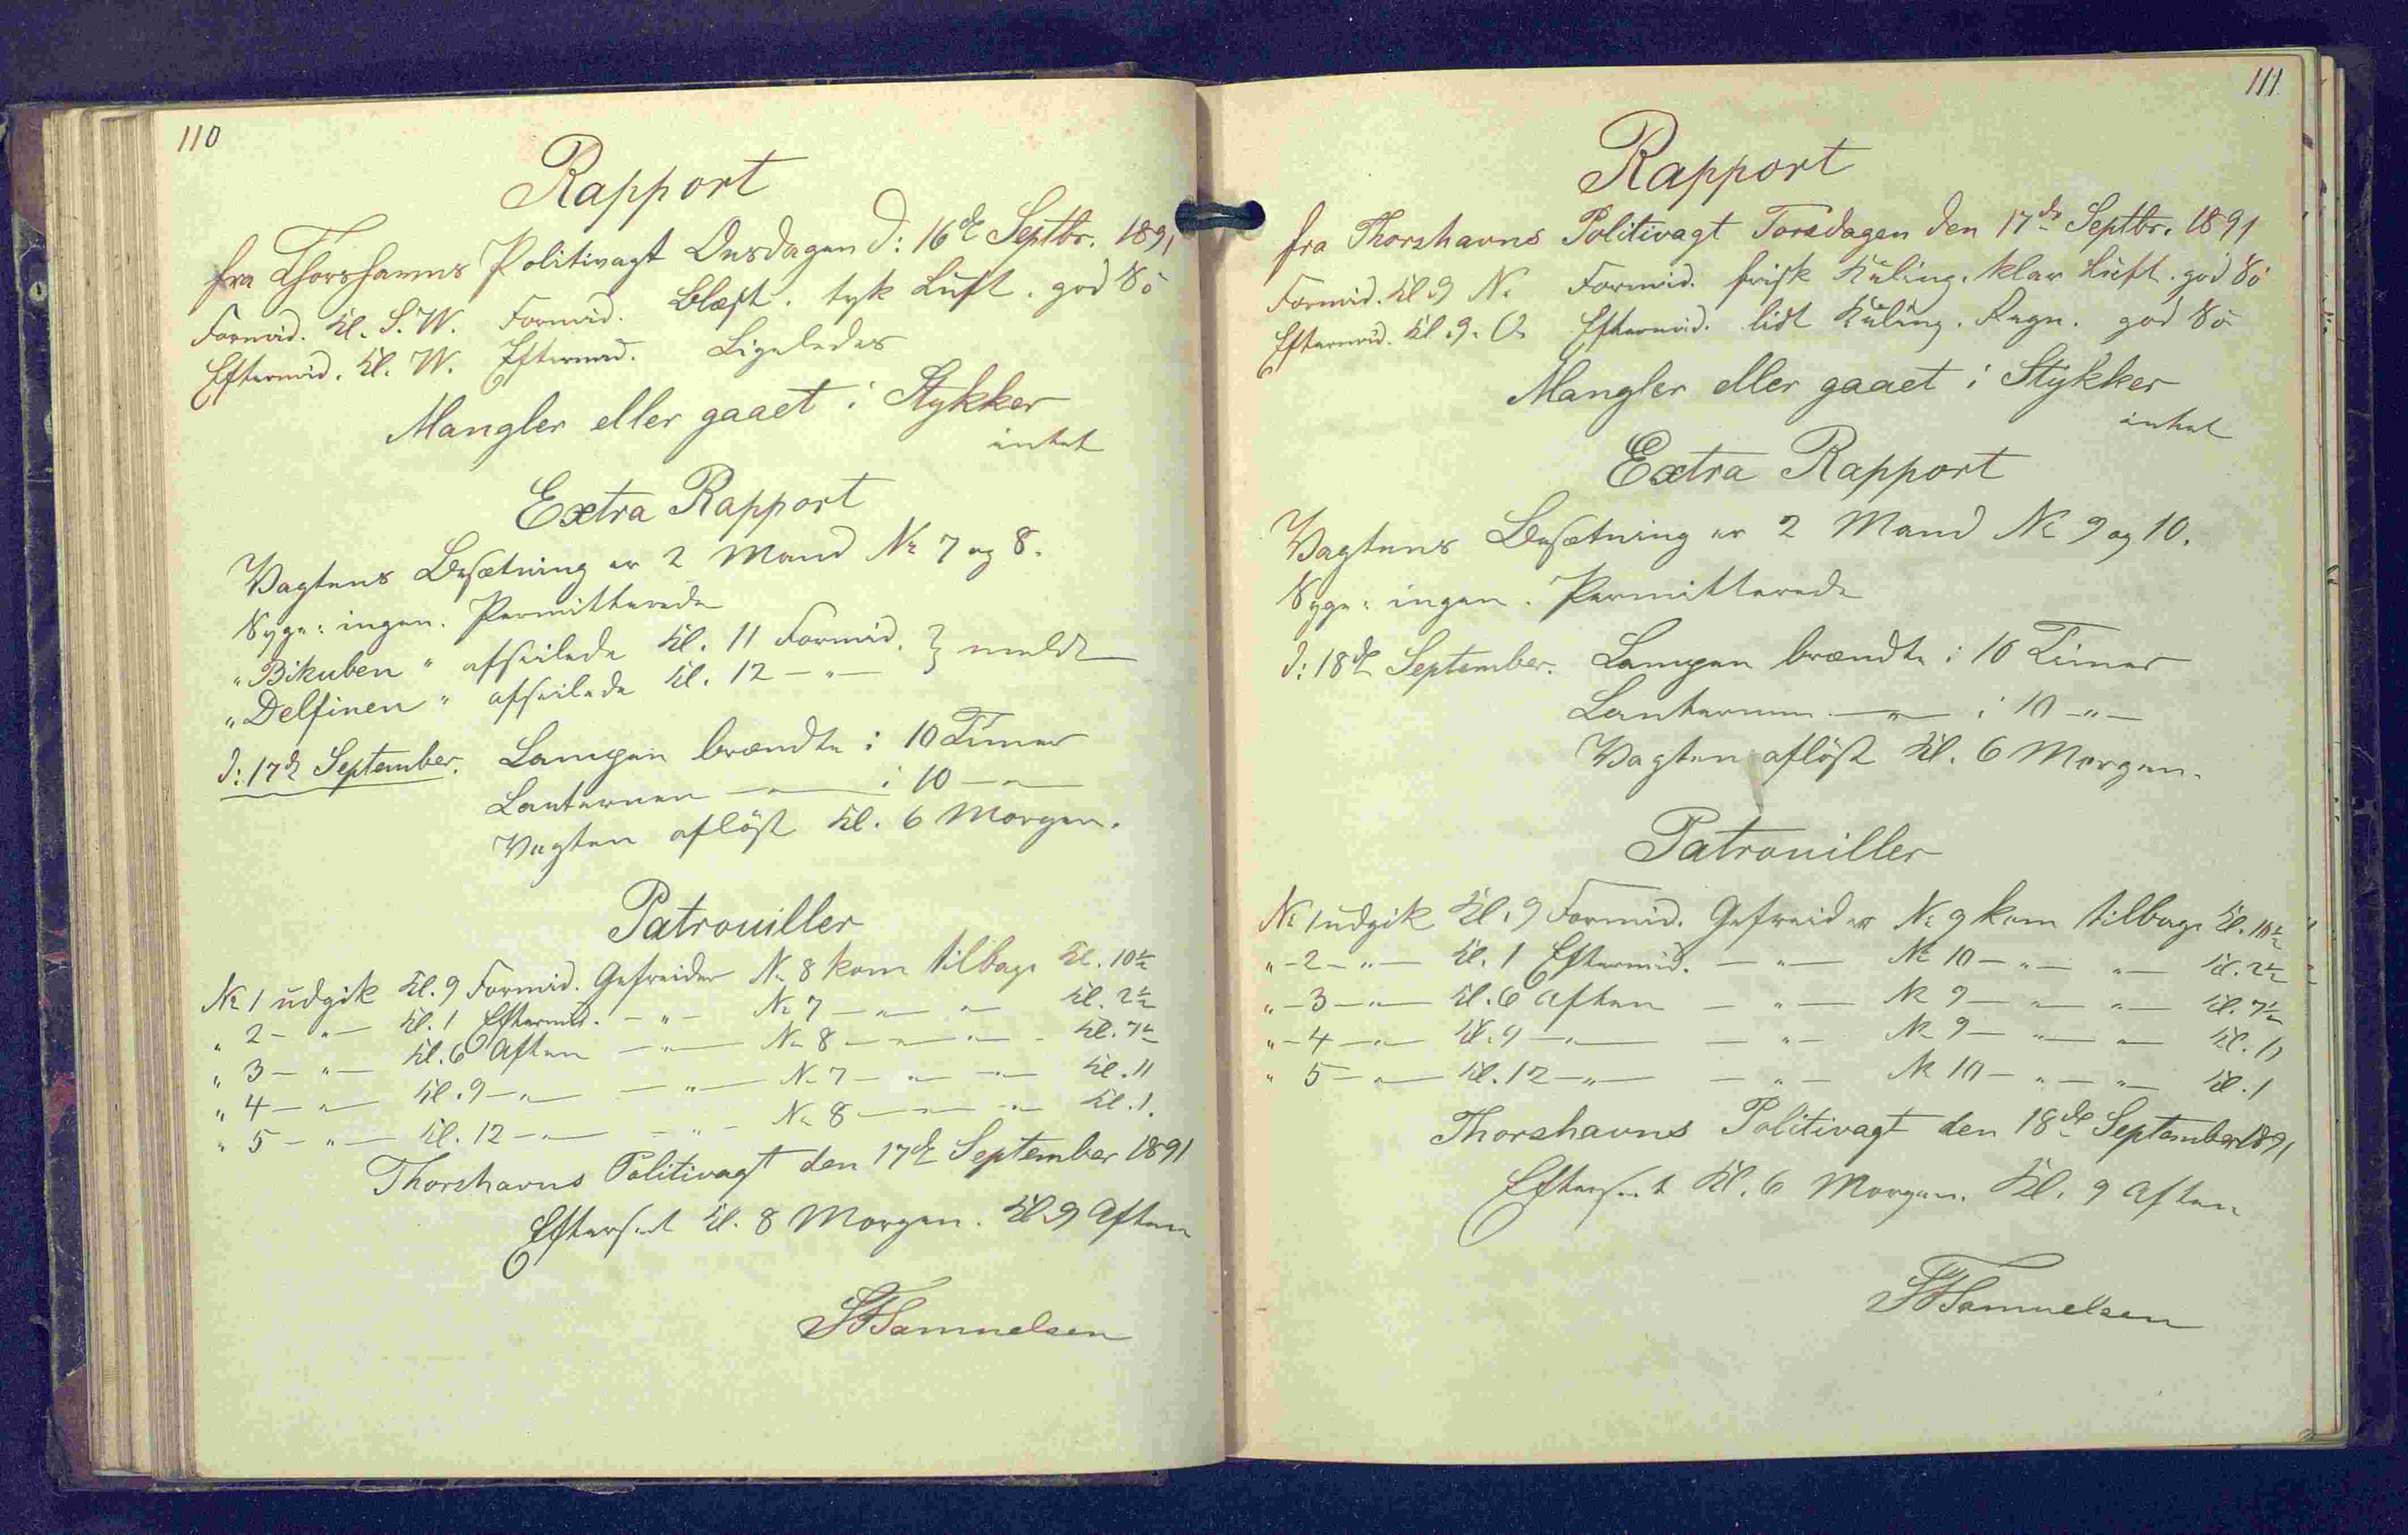 110
Rapport
fra Thorshavns Politivagt Onsdagen d: 16de Septbr. 1891
Formid. Kl. S.W. Formid. Blæst. tyk Luft. god Sö
Eftermid. Kl. W. Eftermid. Ligeledes
Mangler eller gaaet i Stykker
intet
Extra Rapport
Vagtens Besætning er 2 Mand No 7 og 8.
Syge: ingen. Permitterede
"Bikuben" afseilede Kl. 11 Formid. } meldt
"Delfinen" afseilede Kl. 12 — " —
d: 17de September. Lampen brændte i 10 Timer
Lanternen — " — i 10 — " —
Vagten aflöst Kl. 6 Morgen.
Patrouiller
No 1 udgik Kl. 9 Formid. Gefreider No 8 kom tilbage Kl. 10½
" 2 — " — Kl. 1 Eftermid. — " — No 7 — " — " — Kl. 2½
" 3 — " — Kl. 6 Aften — " — No 8 — " — " — Kl. 7½
" 4 — " — Kl. 9 — " — — " — No 7 — " — " — Kl. 11
" 5 — " — Kl. 12 — " — — " — No 8 — " — " — Kl. 1.
Thorshavns Politivagt den 17de September 1891
Efterseet Kl. 8 Morgen. Kl. 9 Aften
Samuelsen
111
Rapport
fra Thorshavns Politivagt Torsdagen den 17de Septbr. 1891
Formid. Kl 9 N. Formid. frisk Kuling. klar Luft. god Sö
Eftermid. Kl. 9. O. Eftermid. lidt Kuling. Regn. god Sö
Mangler eller gaaet i Stykker
intet
Extra Rapport
Vagtens Besætning er 2 Mand No 9 og 10.
Syge: ingen. Permitterede
d: 18de September. Lampen brændte i 10 Timer
Lanternen — " — i 10 — " —
Vagten aflöst Kl. 6 Morgen.
Patrouiller
No 1 udgik Kl. 9 Formid. Gefreider No 9 kom tilbage Kl. 10½
" - 2 — " — Kl. 1 Eftermid. — " — No 10 — " — " — Kl. 2½
" - 3 — " — Kl. 6 Aften — " — No 9 — " — " — Kl. 7½
" - 4 — " — Kl. 9 — " — — " — No 9 — " — " — Kl. 11
" 5 — " — Kl. 12 — " — — " — No 10 — " — " — Kl. 1
Thorshavns Politivagt den 18de September 1891
Efterseet Kl. 6 Morgen. Kl. 9 Aften
Samuelsen